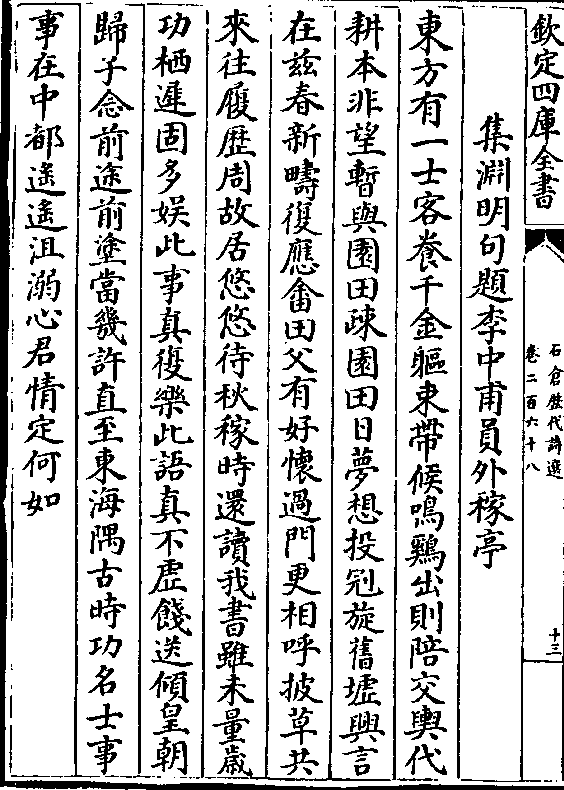 欽定四庫全書
石倉歴代詩選
卷二百六十八
十三
集淵明句題李中甫員外稼亭
東方有一士客養千金軀束帶候鳴鷄出則陪交輿代
耕本非望暫與園田疎園田日夢想投冠旋舊墟興言
在兹春新疇復應畬田父有好懷過門更相呼披草共
來往履歴周故居悠悠待秋稼時還讀我書雖未量歳
功栖遲固多娱此事真復樂此語真不虚餞送傾皇朝
歸子念前途前塗當幾許直至東海隅古時功名士事
事在中都遙遙沮溺心君情定何如